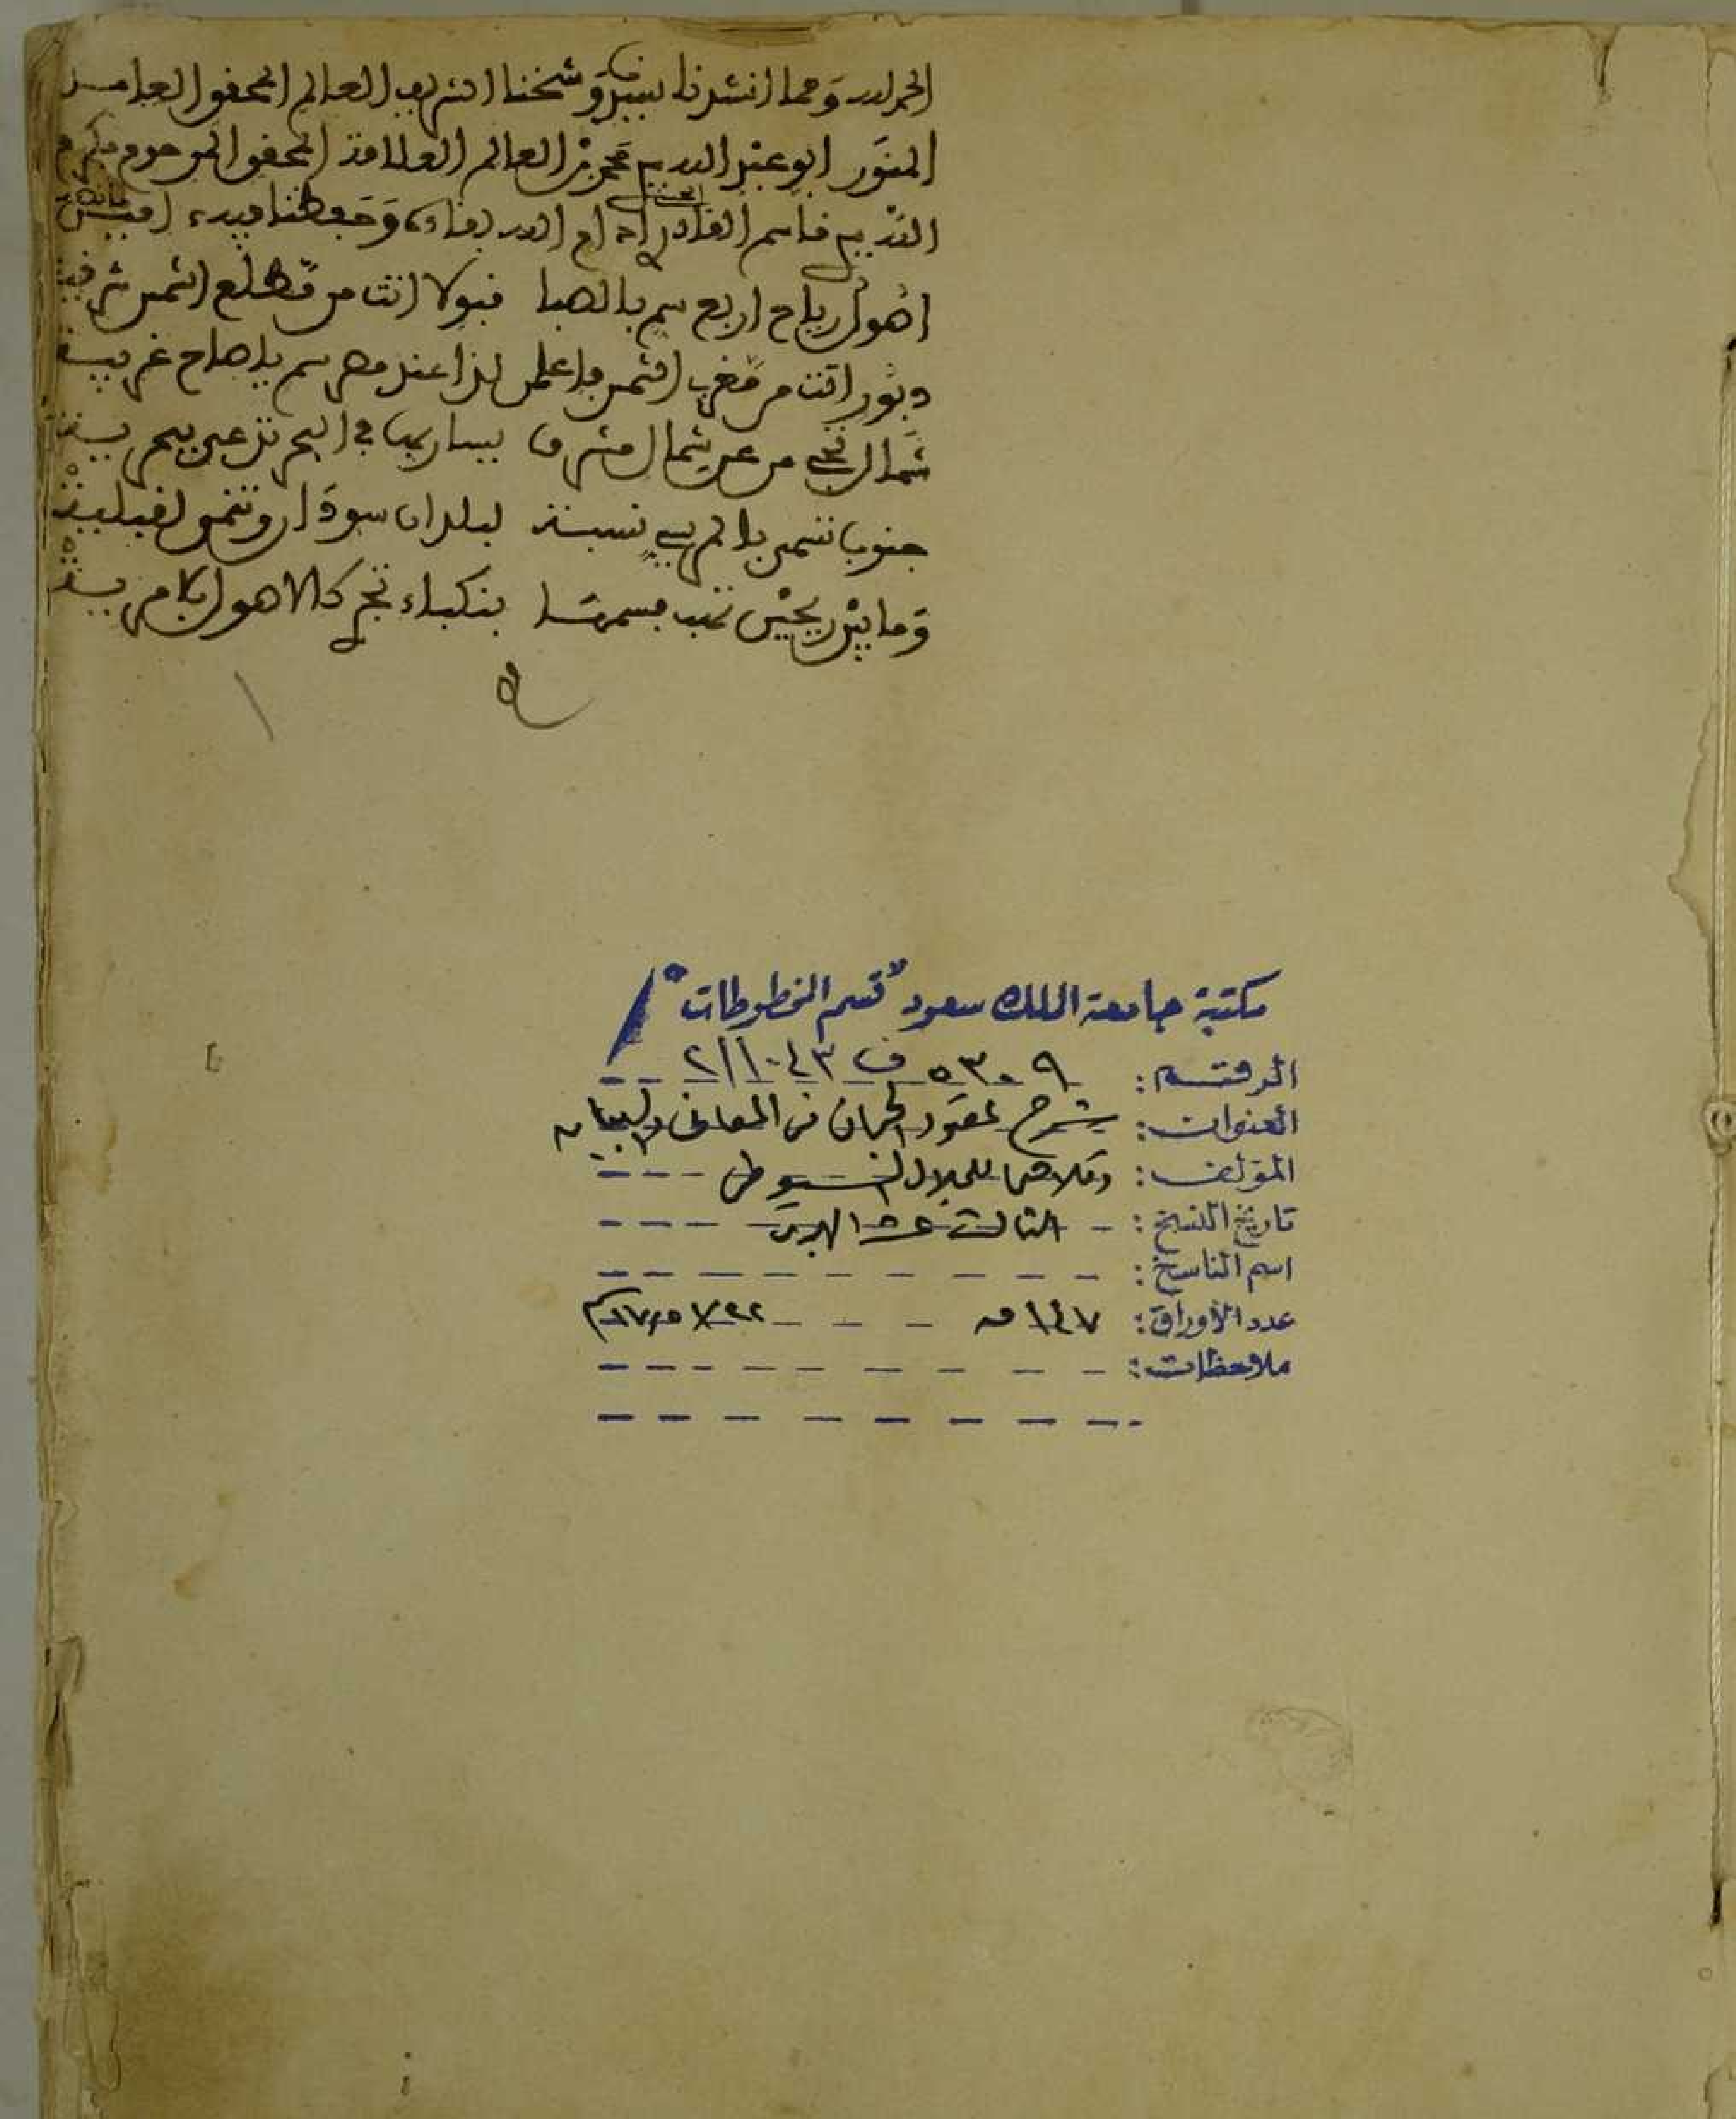 الحمد لله ومما انشدنا سيدنا وشيخنا الشريف العالم المحقق العلامة
المنور ابو عبد الله سيدي محمد بن العالم العلامة المحقق المرحوم بكرم
الله سيدي قاسم القادري ادام الله بقاءه وحفظنا فيه امين
اصول رياح اربع سم بالصبا قبولا اتت من مطلع الشمس شرقية
دبورا اتت من مغرب الشمس فاعلمن لذا عندهم سم ياصاح غربية
شمال تجي من عن شمال مشرق يسار بها في البحر تدعى ببحرية
جنوبا تسمى بالمريسي نسبة لبلدان سودان وتنمو لقبلية
وما بين ريحين تهب فسمها بنكباء تحو كالاصول بلا مرية
مكتبة جامعة الملك سعود "قسم المخطوطات"
الرقم: ٥٣٠٩ ف ٢/١٠٤٣
العنوان: شرح عقود الجمان في المعاني والبيان
المؤلف: وكلاهما للجلال السيوطي
تاريخ النسخ: الثالث عشر الهجري
اسم الناسخ:
عدد الأوراق: ١٤٧ ق ٢٢×١٧٫٥ سم
ملاحظات: